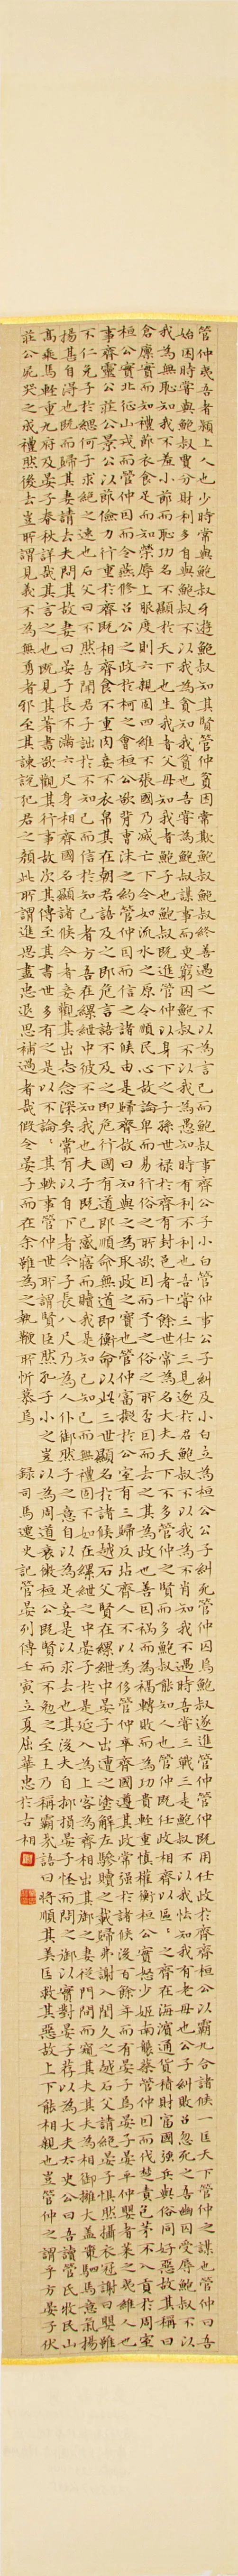 管仲夷吾者潁上人也少時常與鮑叔牙遊鮑叔知其賢管仲貧困常欺鮑叔鮑叔終善遇之不以為言已而鮑叔事齊公子小白管仲事公子糾及小白立為桓公公子糾死管仲囚焉鮑叔遂進管仲管仲既用任政於齊齊桓公以霸九合諸侯一匡天下管仲之謀也管仲曰吾
始困時嘗與鮑叔賈分財利多自與鮑叔不以我為貪知我貧也吾嘗為鮑叔謀事而更窮困鮑叔不以我為愚知時有利不利也吾嘗三仕三見逐於君鮑叔不以我為不肖知我不遇時吾嘗三戰三走鮑叔不以我怯知我有老母也公子糾敗召忽死之吾幽囚受辱鮑叔不以
我為無恥知我不羞小節而恥功名不顯於天下也生我者父母知我者鮑子也鮑叔既進管仲以身下之子孫世祿於齊有封邑者十餘世常為名大夫天下不多管仲之賢而多鮑叔能知人也管仲既任政相齊以區〻之齊在海濱通貨積財富國強兵與俗同好惡故其稱曰
倉廩實而知禮節衣食足而知榮辱上服度則六親固四維不張國乃滅亡下令如流水之原令順民心故論卑而易行俗之所欲因而予之俗之所否因而去之其為政也善因禍而為福轉敗而為功貴輕重慎權衡桓公實怒少姬南襲蔡管仲因而伐楚責包茅不入貢於周室
桓公實北征山戎而管仲因而令燕修召公之政於柯之會桓公欲背曹沫之約管仲因而信之諸侯由是歸齊故曰知與之為取政之寶也管仲富擬於公室有三歸反坫齊人不以為侈管仲卒齊國遵其政常強於諸侯後百餘年而有晏子焉晏平仲嬰者萊之夷維人也
事齊靈公莊公景公以節儉力行重於齊既相齊食不重肉妾不衣帛其在朝君語及之即危言語不及之即危行國有道即順命無道即衡命以此三世顯名於諸侯越石父賢在縲紲中晏子出遭之塗解左驂贖之載歸弗謝入閨久之越石父請絕晏子懼然攝衣冠謝曰嬰雖
不仁免子於緦何子求絕之速也石父曰不然吾聞君子詘於不知己而信於知己者方吾在縲紲中彼不知我也夫子既已感寤而贖我是知己知己而無禮固不如在縲紲之中晏子於是延入為上客晏子為齊相出其御之妻從門間而窺其夫其夫為相御擁大蓋策駟馬意氣揚
揚甚自得也既而歸其妻請去夫問其故妻曰晏子長不滿六尺身相齊國名顯諸侯今者妾觀其出志念深矣常有以自下者今子長八尺乃為人仆御然子之意自以為足妾是以求去也其後夫自抑損晏子怪而問之御以實對晏子薦以為大夫太史公曰吾讀管氏牧民山
高乘馬輕重九府及晏子春秋詳哉其言之也既見其著書欲觀其行事故次其傳至其書世多有之是以不論〻其軼事管仲世所謂賢臣然孔子小之豈以為周道衰微桓公既賢而不勉之至王乃稱霸哉語曰將順其美匡救其惡故上下能相親也豈管仲之謂乎方晏子伏
莊公屍哭之成禮然後去豈所謂見義不為無勇者邪至其諫說犯君之顏此所謂進思盡忠退思補過者哉假令晏子而在余雖為之執鞭所忻慕焉 錄司馬遷史記管晏列傳壬寅立夏屈華忠於古相